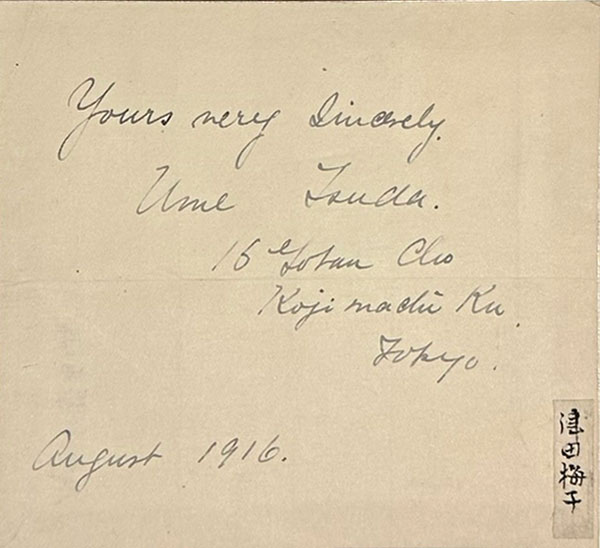 Yours very Sincerely.
Ume Tsuda.
16 Gotan Cho
Kojimachi Ku.
Tokyo.
August 1916.
津田梅子